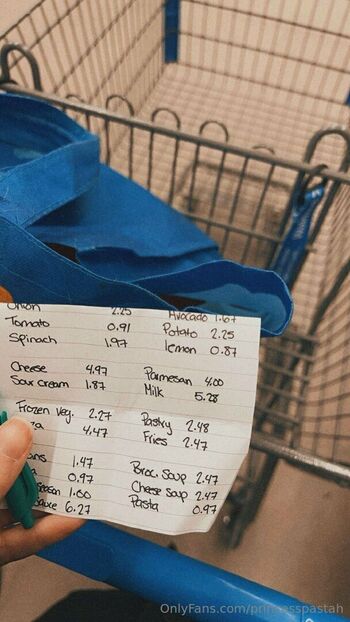 Onion 2.25
Tomato 0.91
Spinach 1.97
Cheese 4.97
Sour cream 1.87
Frozen veg. 2.27
za 4.47
ans 1.47
a 0.97
season 1.00
sauce 6.27
Avocado 1.67
Potato 2.25
lemon 0.87
Parmesan 4.00
Milk 5.28
Pastry 2.48
Fries 2.47
Broc. Soup 2.47
Cheese Soup 2.47
Pasta 0.97
OnlyFans.com/princesspastah